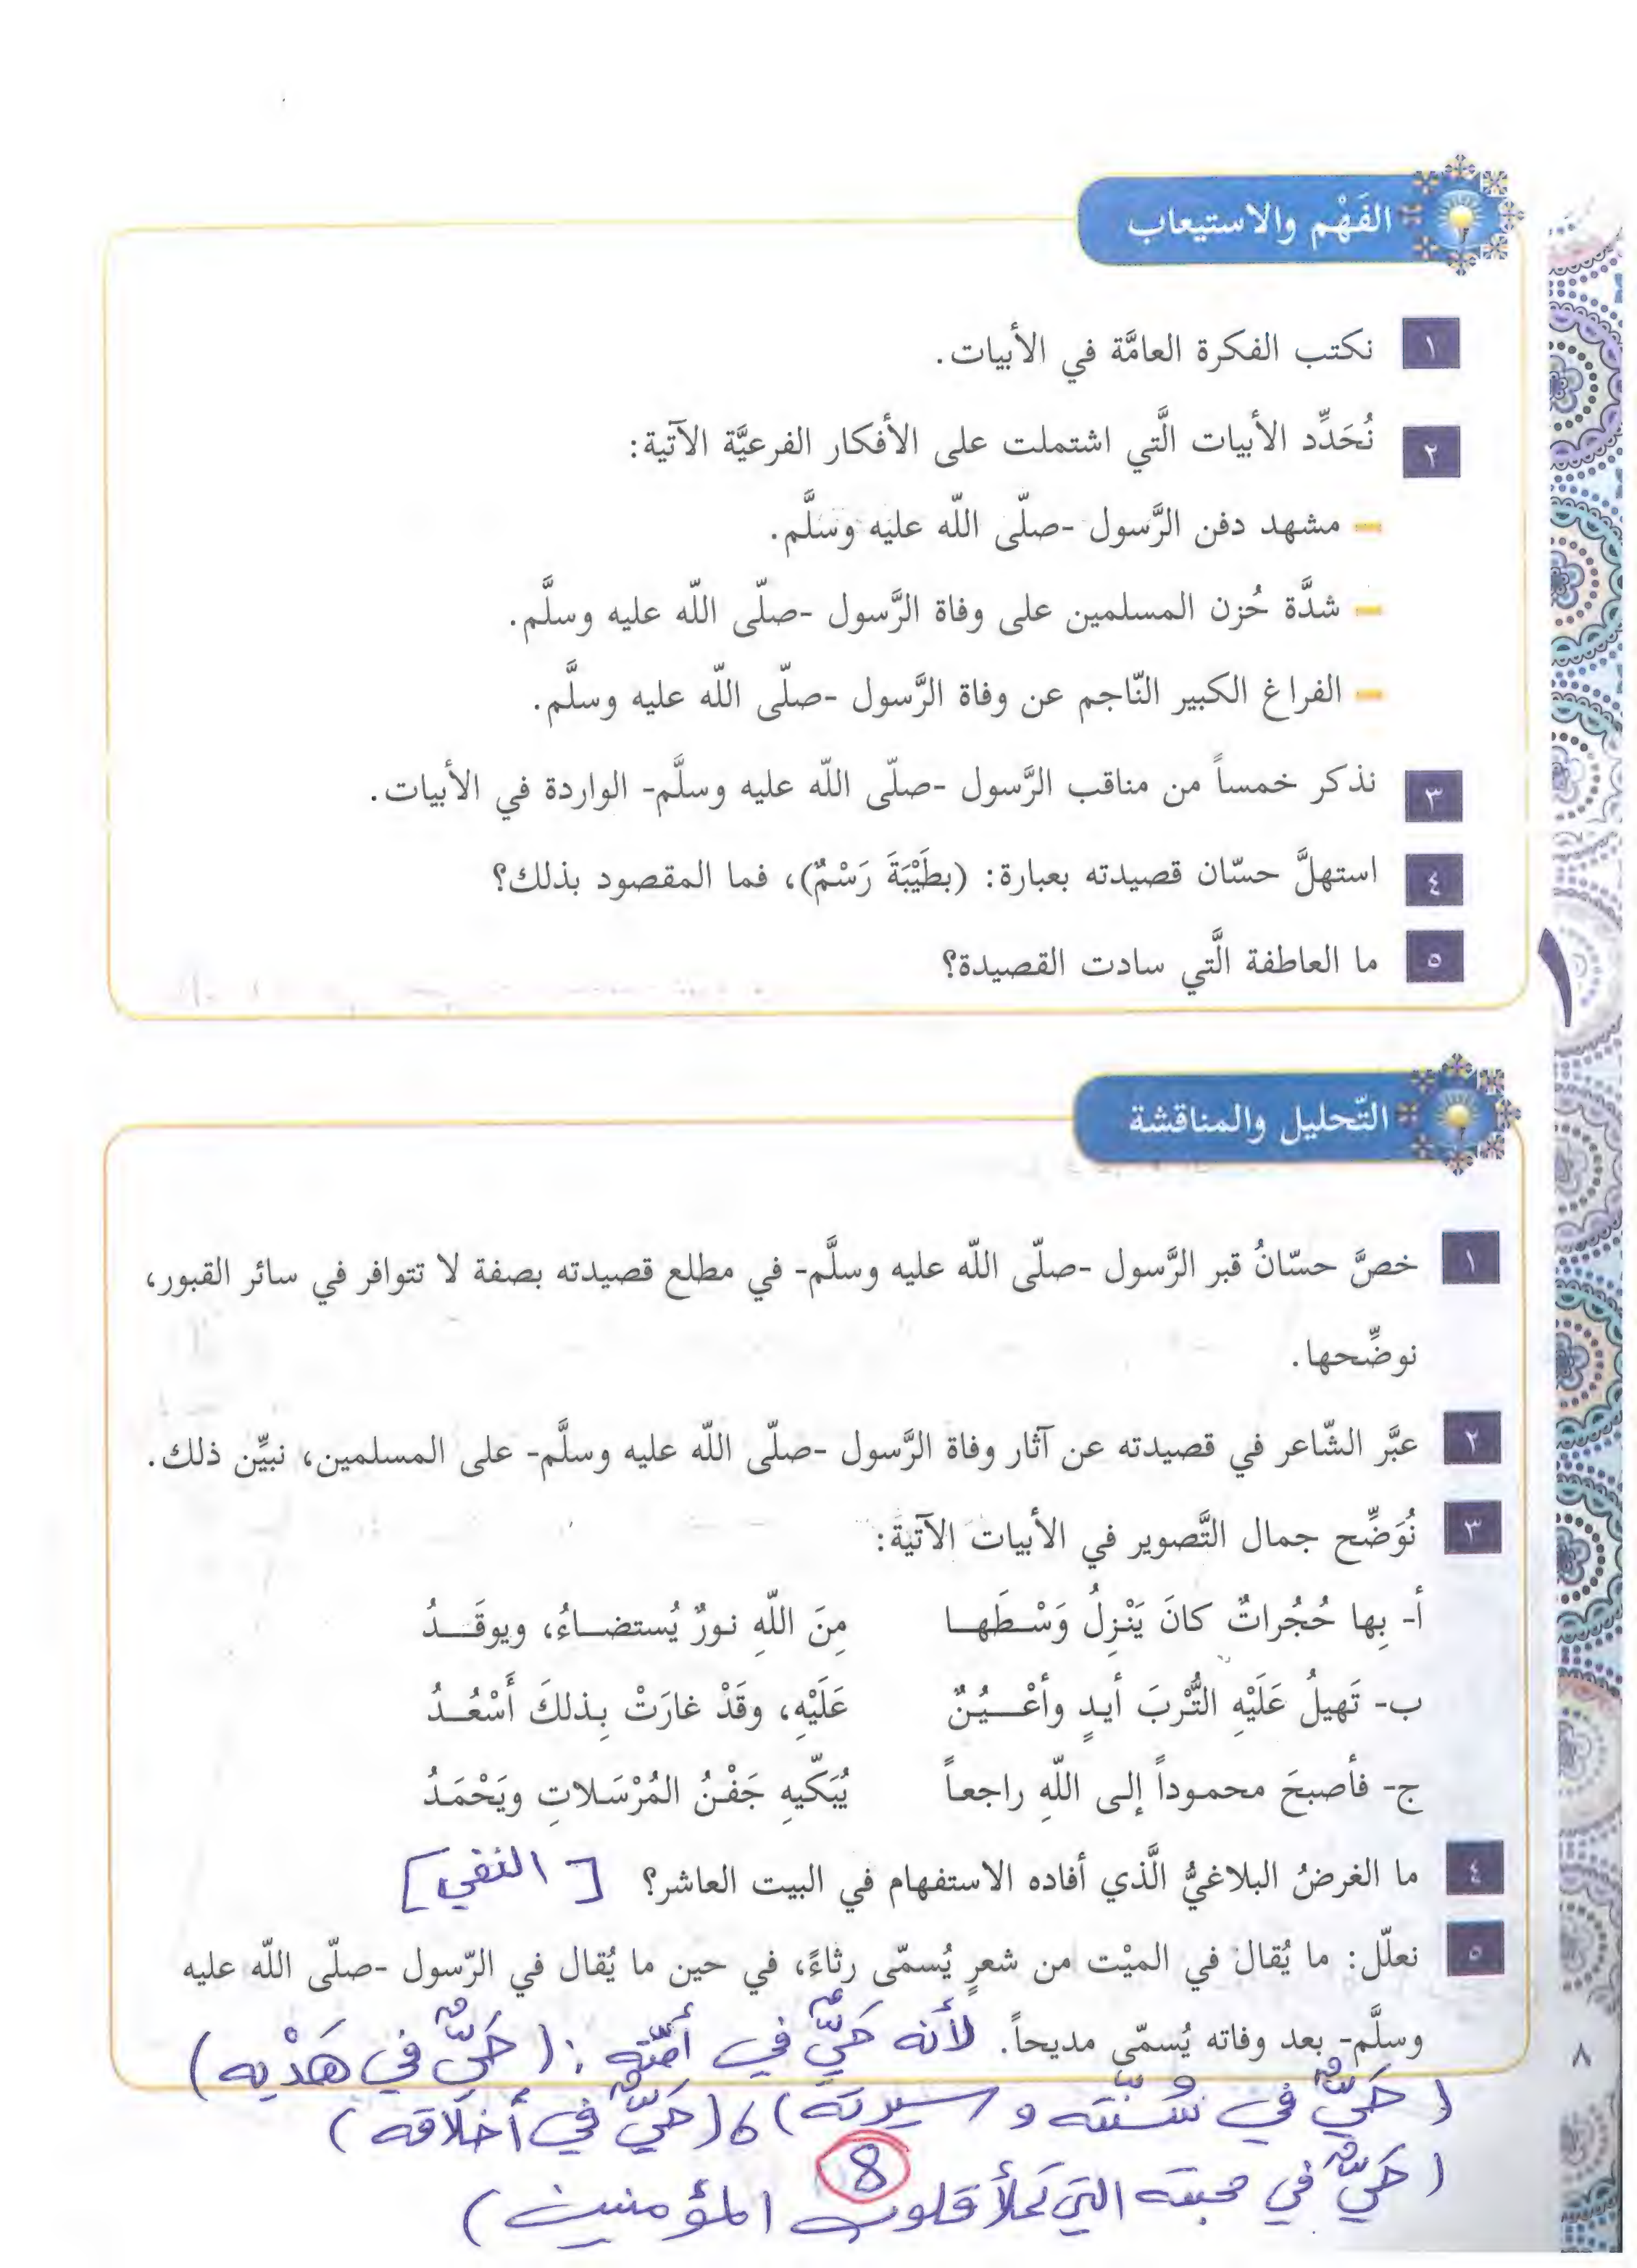 الفَهْم والاستيعاب
١ نكتب الفكرة العامَّة في الأبيات.
٢ نُحَدِّد الأبيات الَّتي اشتملت على الأفكار الفرعيَّة الآتية:
– مشهد دفن الرَّسول -صلّى اللّه عليه وسلَّم.
– شدَّة حُزن المسلمين على وفاة الرَّسول -صلّى اللّه عليه وسلَّم.
– الفراغ الكبير النّاجم عن وفاة الرَّسول -صلّى اللّه عليه وسلَّم.
٣ نذكر خمساً من مناقب الرَّسول -صلّى اللّه عليه وسلَّم- الواردة في الأبيات.
٤ استهلَّ حسّان قصيدته بعبارة: (بطَيْبَةَ رَسْمٌ)، فما المقصود بذلك؟
٥ ما العاطفة الَّتي سادت القصيدة؟
١
التّحليل والمناقشة
١ خصَّ حسّانُ قبر الرَّسول -صلّى اللّه عليه وسلَّم- في مطلع قصيدته بصفة لا تتوافر في سائر القبور،
نوضِّحها.
٢ عبَّر الشّاعر في قصيدته عن آثار وفاة الرَّسول -صلّى اللّه عليه وسلَّم- على المسلمين، نبيِّن ذلك.
٣ نُوَضِّح جمال التَّصوير في الأبيات الآتية:
أ- بِها حُجُراتٌ كانَ يَنْزِلُ وَسْطَهـا مِنَ اللّهِ نـورٌ يُستضـاءُ، ويوقَـدُ
ب- تَهيلُ عَلَيْهِ التُّرْبَ أيـدٍ وأعْـيُـنٌ عَلَيْهِ، وقَدْ غارَتْ بِـذلكَ أَسْعُـدُ
ج- فأصبحَ محمـوداً إلـى اللّهِ راجعـاً يُبَكّيهِ جَفْـنُ المُرْسَـلاتِ ويَحْمَـدُ
٤ ما الغرضُ البلاغيُّ الَّذي أفاده الاستفهام في البيت العاشر؟ [النفي]
٥ نعلّل: ما يُقال في الميْت من شعرٍ يُسمّى رثاءً، في حين ما يُقال في الرّسول -صلّى اللّه عليه
وسلَّم- بعد وفاته يُسمّى مديحاً. لأنه حَيٌّ في أمّته: (حَيٌّ في هَدْيه)
(حَيٌّ في سُنّته و سيرته) ، (حَيٌّ في أخلاقه)
(حَيٌّ في محبته التي تملأ قلوب المؤمنين)
8
٨